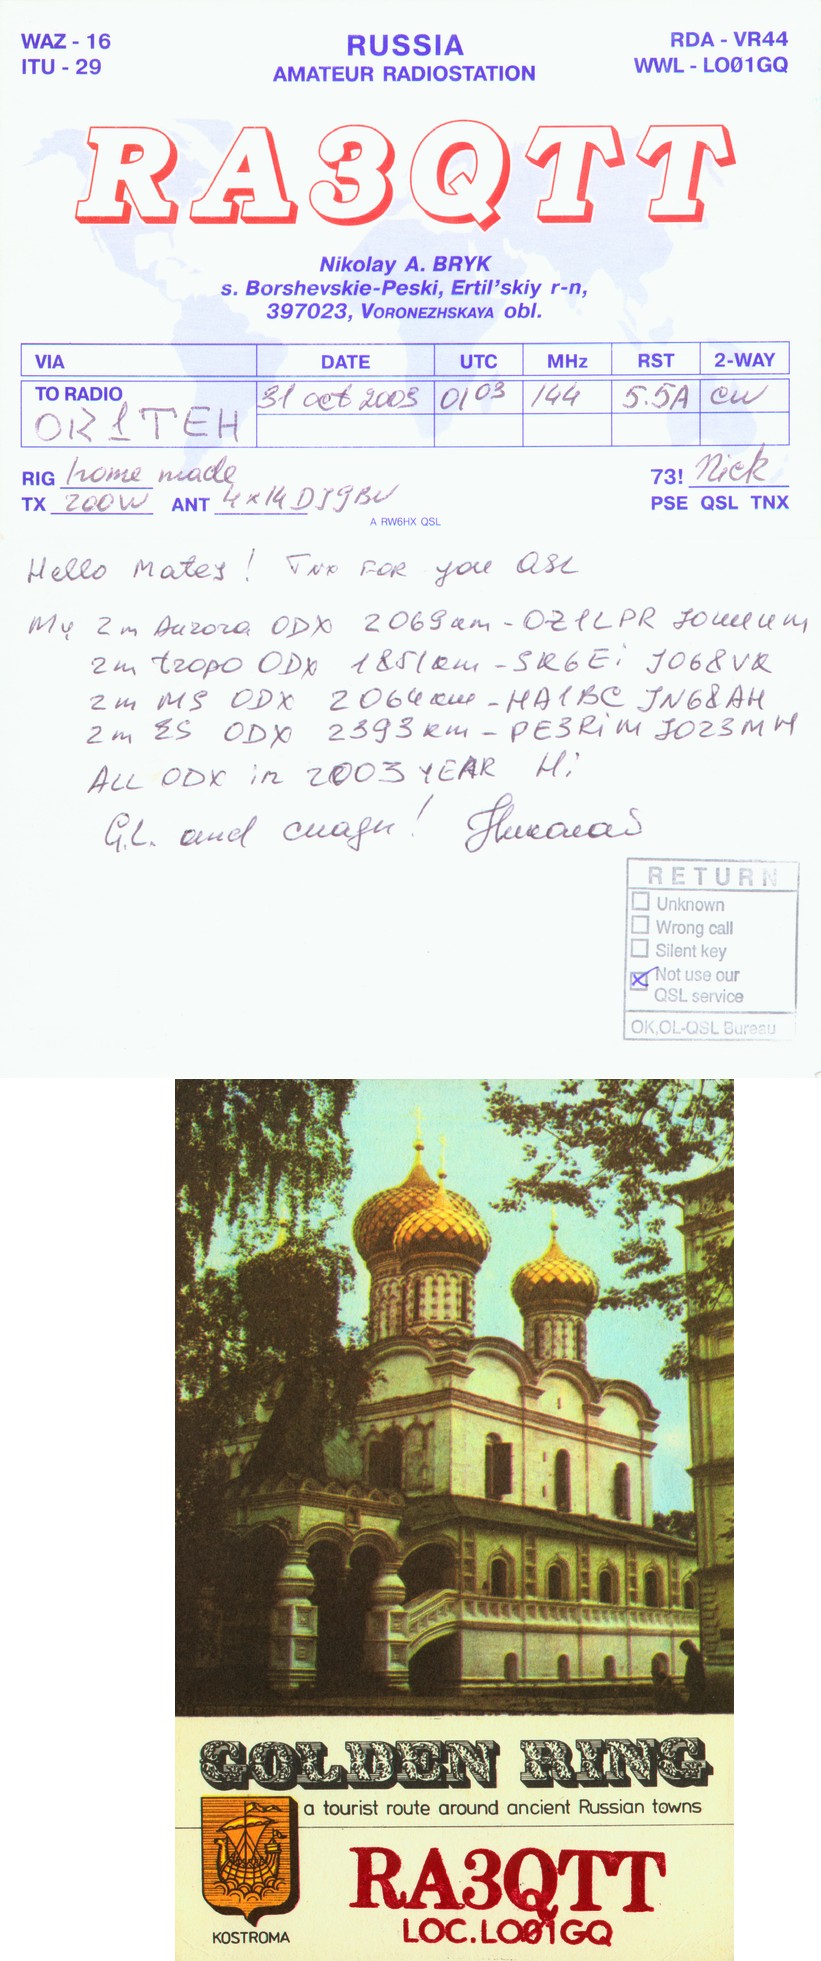 WAZ - 16
ITU - 29
RUSSIA
AMATEUR RADIOSTATION
RDA - VR44
WWL - LOØ1GQ
RA3QTT
Nikolay A. BRYK
s. Borshevskie-Peski, Ertil'skiy r-n,
397023, VORONEZHSKAYA obl.
VIA DATE UTC MHz RST 2-WAY
TO RADIO 31 oct 2003 0103 144 5.5A CW
OK1TEH
RIG home made 73! Nick
TX 200W ANT 4x14 DJ9BV PSE QSL TNX
A RW6HX QSL
Hello Matej! Tnx FOR you QSL
My 2m Aurora ODX 2069km - OZ1LPR
2m tropo ODX 1851km - SK6Ei JO68VK
2m MS ODX 2064km - HA1BC JN68AH
2m ES ODX 2393km - PE3RiM JO23MH
ALL ODX in 2003 YEAR Hi
G.L. and Николай
RETURN
Unknown
Wrong call
Silent key
Not use our
QSL service
OK,OL-QSL Bureau
GOLDEN RING
a tourist route around ancient Russian towns
KOSTROMA
RA3QTT
LOC.LOØ1GQ